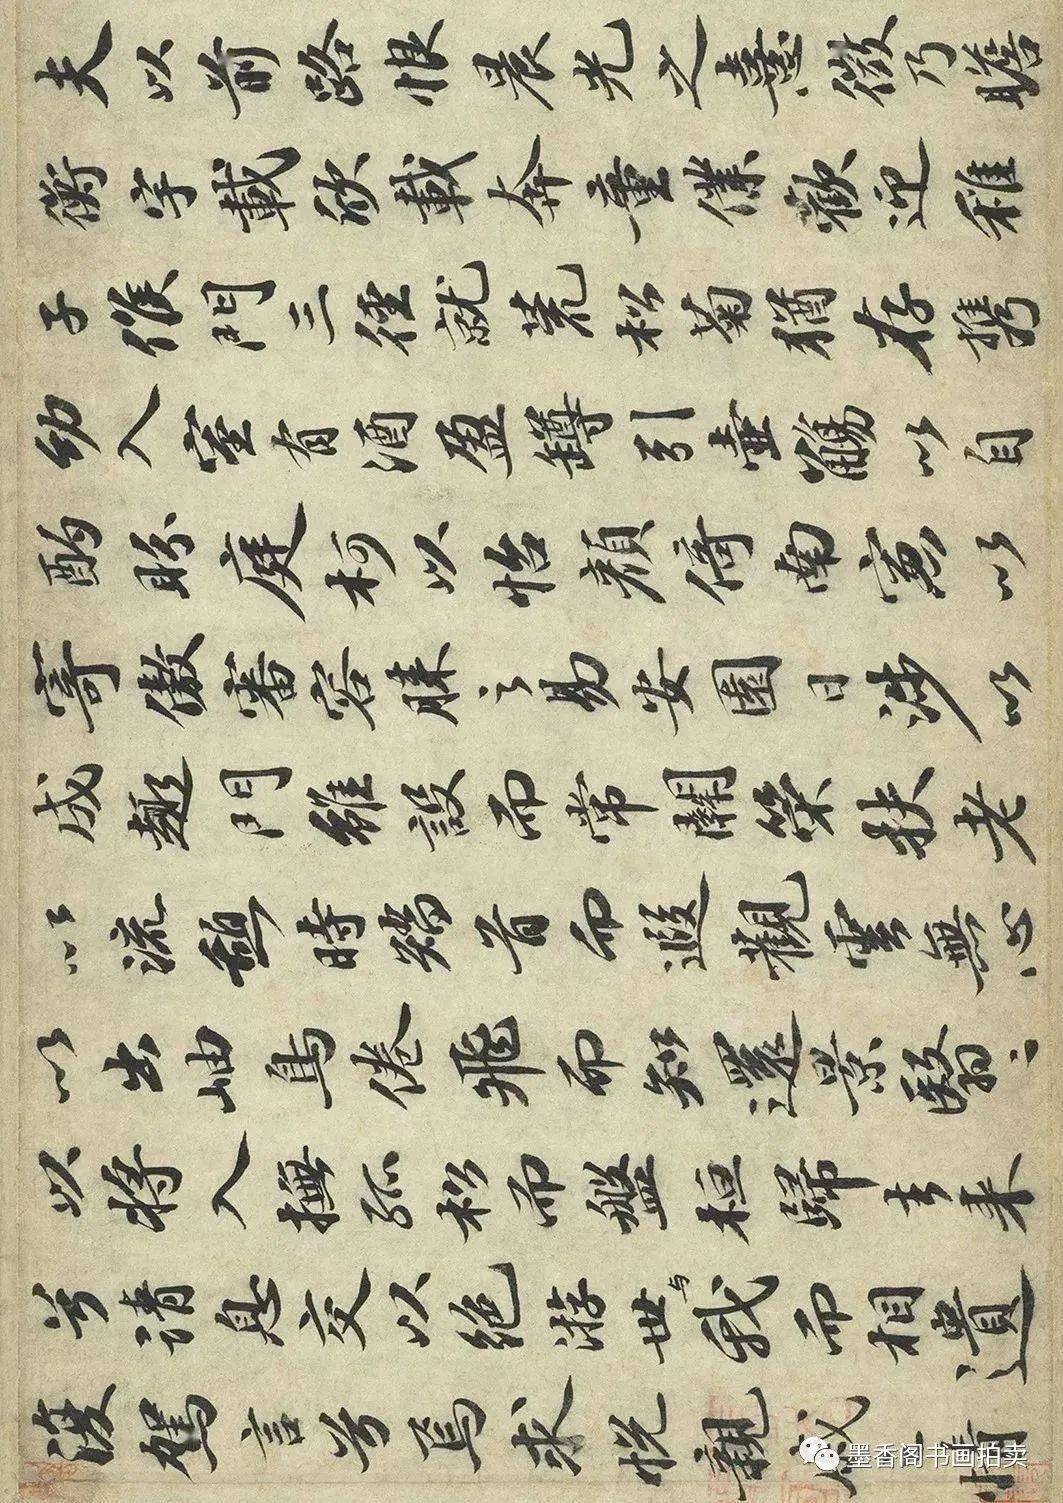 夫以前路恨晨光之熹微乃瞻
衡宇載欣載奔童僕歡迎稚
子候門三徑就荒松菊猶存携
幼入室有酒盈罇引壺觴以自
酌眄庭柯以怡顏倚南窗以
寄傲審容膝之易安園日涉以
成趣門雖設而常關策扶老
以流憩時矯首而遐觀雲無心
以出岫鳥倦飛而知還景翳〻
以將入撫孤松而盤桓歸去来
兮請息交以絕游世与我而相遺
復駕言兮焉求悅親戚之情
墨香阁书画拍卖